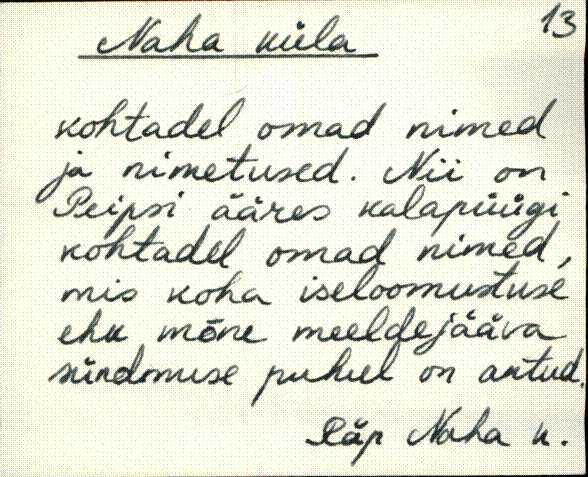 13
Naha küla
kohtadel omad nimed
ja nimetused. Nii on
Peipsi ääres kalapüügi
kohtadel omad nimed,
mis koha iseloomustuse
ehk mõne meeldejääva
sündmuse puhul on antud.
Räp Naha k.